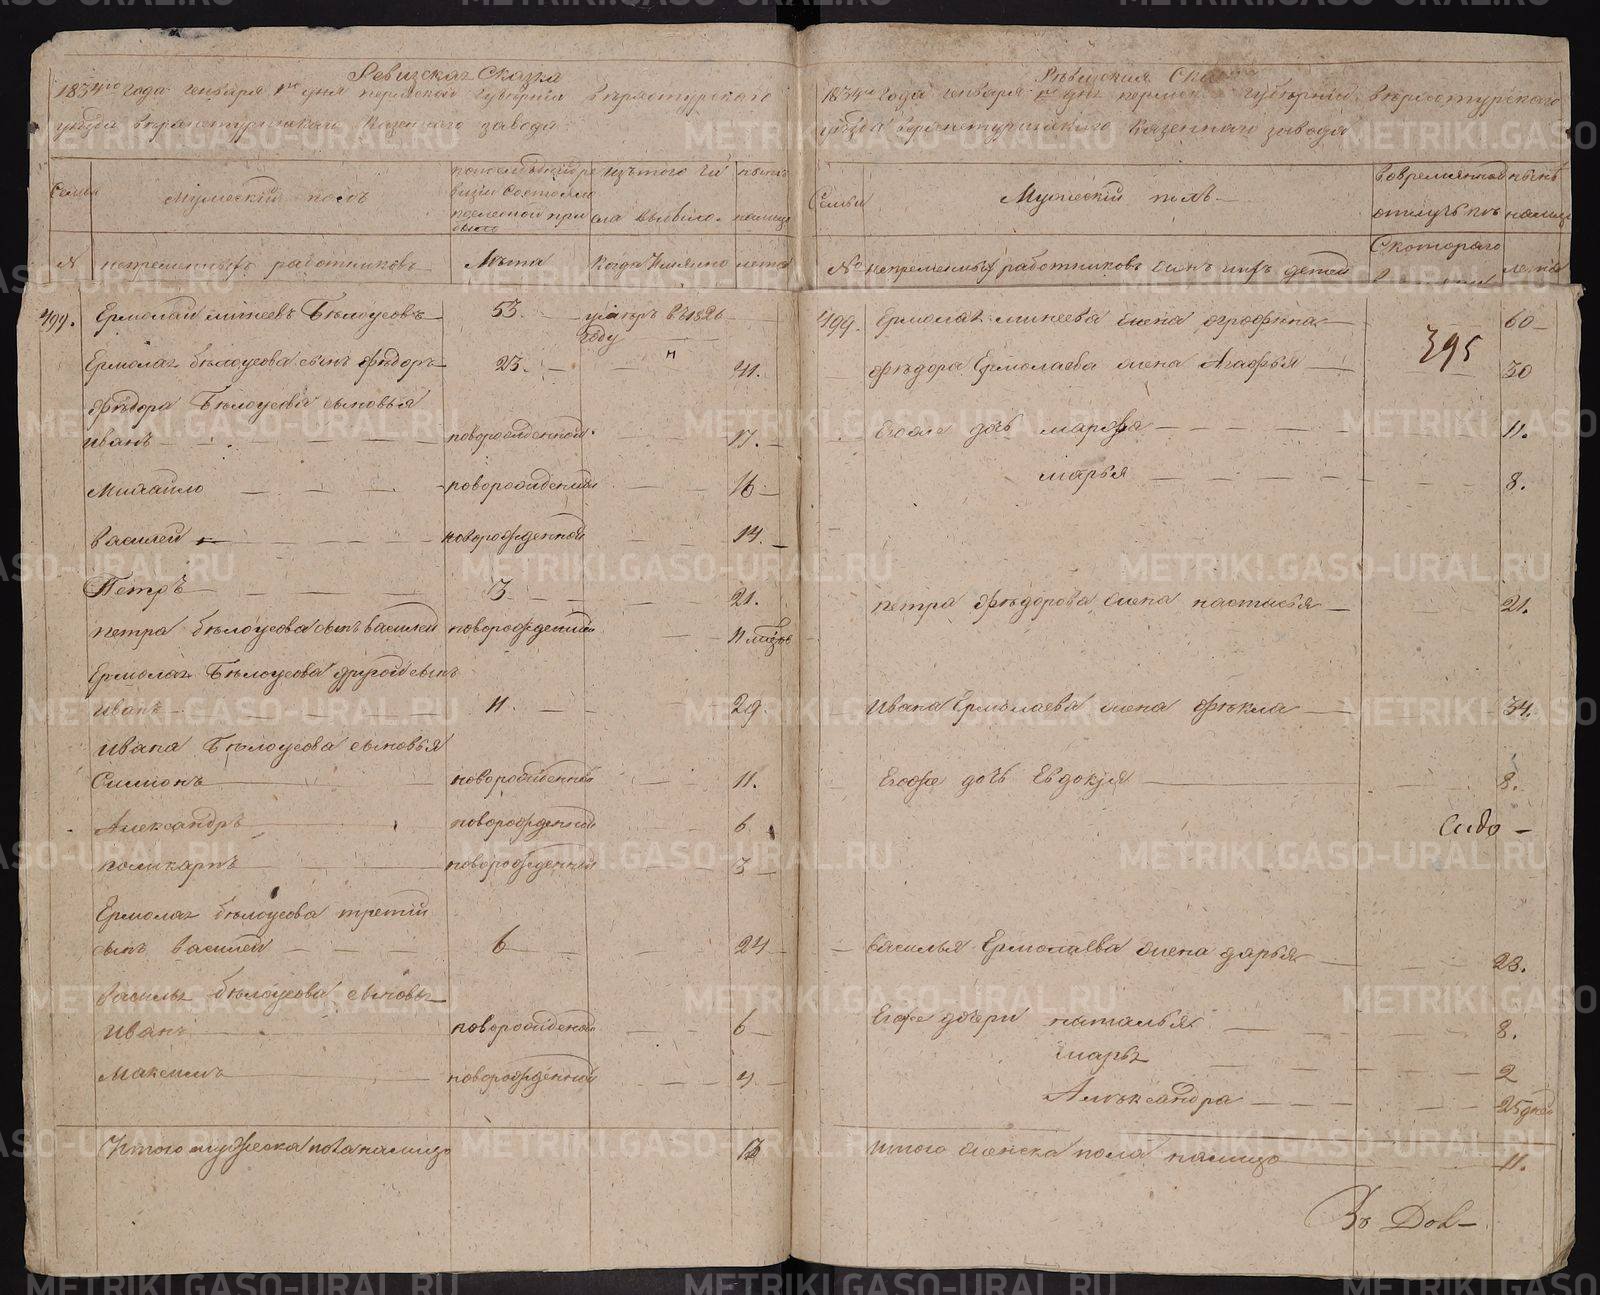 Ревизская Сказка
1834го года генваря 1го дня пермской губернии верхотурского
уезда верхнетуринского казенного завода
Семьи
Мужеский полъ
по последней ре
визии состояло
и после оной при
было
изъ того чи
сла выбыло
ныне
налицо
№
непременныхъ работниковъ
Лѣта
Когда Имянно
лета
499.
Ермолай минеевъ Бѣлоусовъ
53.
умеръ в 1826
году
Ермолая бѣлоусова сынъ фѣдоръ
23.
41.
Фѣдора Бѣлоусова сыновья
иванъ
новорожденной
17.
Михайло
новорожденный
16
василей
новорожденной
14.
Петръ
3
21.
петра бѣлоусова сынъ василей
новорожденный
11 мѣзвъ
Ермолая Бѣлоусова другой сынъ
иванъ
11.
29.
ивана Бѣлоусова сыновья
Симионъ
новорожденной
11.
Александръ
новорожденной
6
поликарпъ
новорожденный
3
Ермолая бѣлоусова третий
сынъ василей
6
24
василья бѣлоусова сыновья
иванъ
новорожденной
6
Максимъ
новорожденной
4
Итого мужеска пола налицо
13
Ревизская Ска
1834го года генваря 1го дня пермской губернии верхотурского
уезда верхнетуринского казенного завода
Семьи
Мужеский полъ
во временной
отлучкѣ
ныне
налицо
№
непременныхъ работниковъ женъ ихъ детей
С котораго
лета
499.
Ермолая минеева жена огрофина
60
395
фѣдора Ермолаева жена Агафья
30
Егоже дочь марфа
11.
марья
8.
петра Фѣдорова жена настасья
21.
ивана Ермолаева жена фѣкла
34.
Егоже дочь Евдокия
8.
Сидо
василья Ермолаева жена дарья
23.
Егоже дочери наталья
8.
марья
2
Алѣксандра
25 дней
итого женска пола налицо
11.
Въ Дов